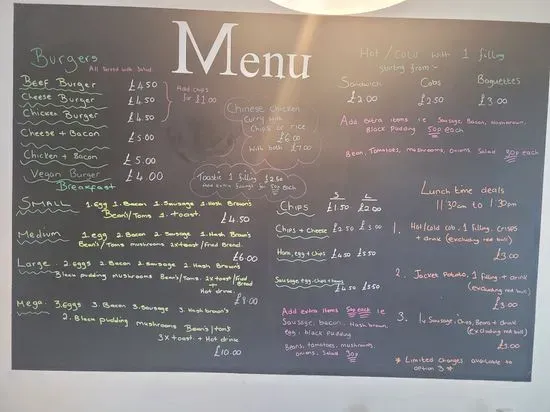 Menu
Burgers
All Served with Salad
Beef Burger £4.50
Cheese Burger £4.50
Chicken Burger £4.50
Add chips
for £1.00
Cheese + Bacon £5.00
Chicken + Bacon £5.00
Vegan Burger £4.00
Chinese Chicken
Curry with
Chips or rice
£6.00
With both £7.00
Toastie 1 filling £2.50
50p each
Hot / Cold with 1 filling
Starting from:-
Sandwich Cobs Baguettes
£2.00 £2.50 £3.00
Add extra items ie Sausage, Bacon, Hashbrown,
Black Pudding 50p each
Bean, Tomatoes, mushrooms, onions, Salad 30p each
Breakfast
Small 1.Egg 1.Bacon 1.Sausage 1.Hash Brown's
Bean's/Toms 1.toast.
£4.50
Medium 1.egg 2.Bacon 2.Sausage 1.Hash Brown's
Bean's/Toms mushrooms 2xtoast/Fried Bread.
£6.00
Large. 2.eggs 2.Bacon 2.Sausage 2.Hash Brown's
Black pudding mushrooms Bean's/Toms 2xtoast/Fried
Bread
+
Hot drink.
£8.00
Mega. 3.Eggs 3.Bacon 3.Sausage 3.Hash brown's
2.Black pudding mushrooms Bean's/tom's
3xtoast + Hot drink
£10.00
S L
Chips £1.50 £2.00
Chips + Cheese £2.50 £3.00
Ham, egg + chips £4.50 £5.50
Sausage, egg, chips + beans £4.50 £5.50
Add extra items 50p each ie
Sausage, bacon, Hash brown,
egg, black pudding
Beans, tomatoes, mushrooms,
onions, Salad 30p
Lunch time deals
11:30am to 1:30pm
1. Hot/cold cob, 1 filling, crisps
+ drink (excluding red bull)
£3.00
2. Jacket Potato, 1 filling + drink
(excluding red bull)
£5.00
3. Sausage, Chips, Beans + drink
(excluding red bull)
£5.00
* Limited changes available to
option 3 *